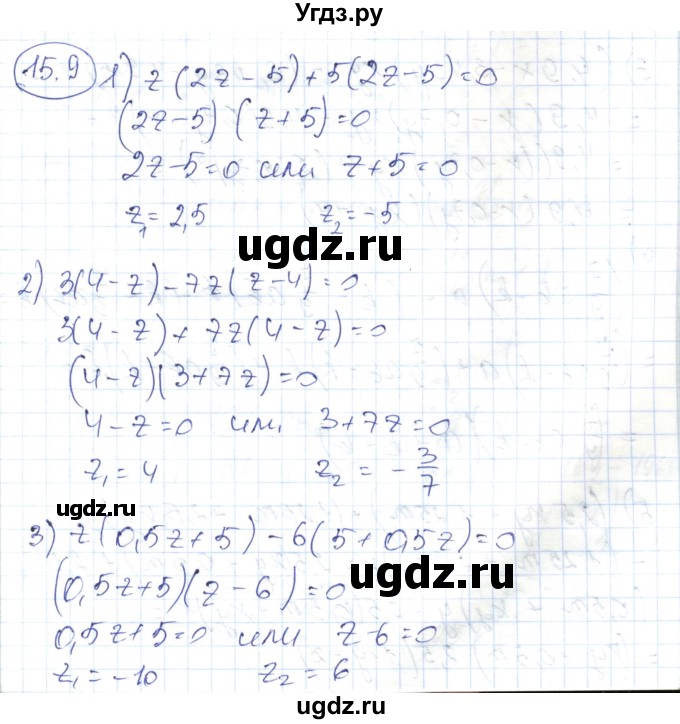 Угдз.ру
15.9 1) z(2z - 5) + 5(2z - 5) = 0
(2z - 5) (z + 5) = 0
2z - 5 = 0 или z + 5 = 0
z₁ = 2,5 z₂ = -5
ugdz.ru
ugdz.ru
2) 3(4 - z) - 7z(z - 4) = 0
3(4 - z) + 7z(4 - z) = 0
(4 - z)(3 + 7z) = 0
4 - z = 0 или 3 + 7z = 0
z₁ = 4 z₂ = - 3/7
ugdz.ru
3) z(0,5z + 5) - 6(5 + 0,5z) = 0
ugdz.ru
(0,5z + 5)(z - 6) = 0
0,5z + 5 = 0 или z - 6 = 0
z₁ = -10 z₂ = 6
ugdz.ru